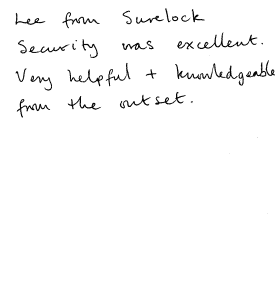 Lee from Surelock
Security was excellent.
Very helpful + knowledgeable
from the outset.